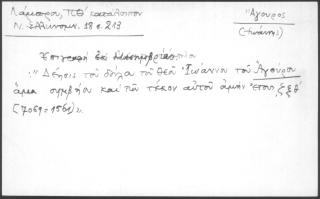 Λάμπρου, ΠΘ' κατάλοιπον
Ν. Ἑλληνομν. 18 σ. 213
Ἄγουρος
(Ἰωάννης)
Ἐπιγραφὴ ἐκ
"Δέησις τοῦ δούλου τοῦ Θεοῦ Ἰωάννου τοῦ Ἀγούρου
ἅμα συμβίου καὶ τῶν τέκνων αὐτοῦ ἀμήν Ἔτους ζξθ'
(7069=1561)".